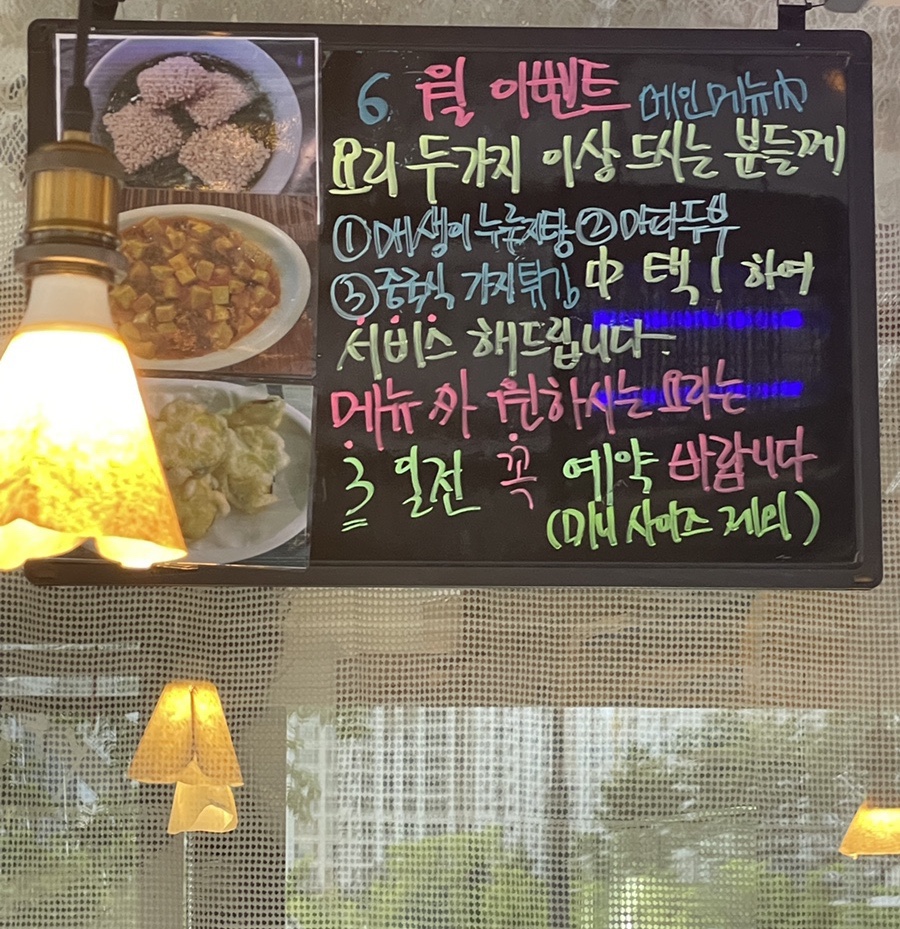 6 월 이벤트 메인메뉴中
요리 두가지 이상 드시는 분들께
①매생이 누룽지탕 ②마파두부
③중국식 가지튀김 中 택 1 하여
서비스 해드립니다.
메뉴 外 원하시는 요리는
3 일전 꼭 예약 바랍니다
(미니 사이즈 제외)